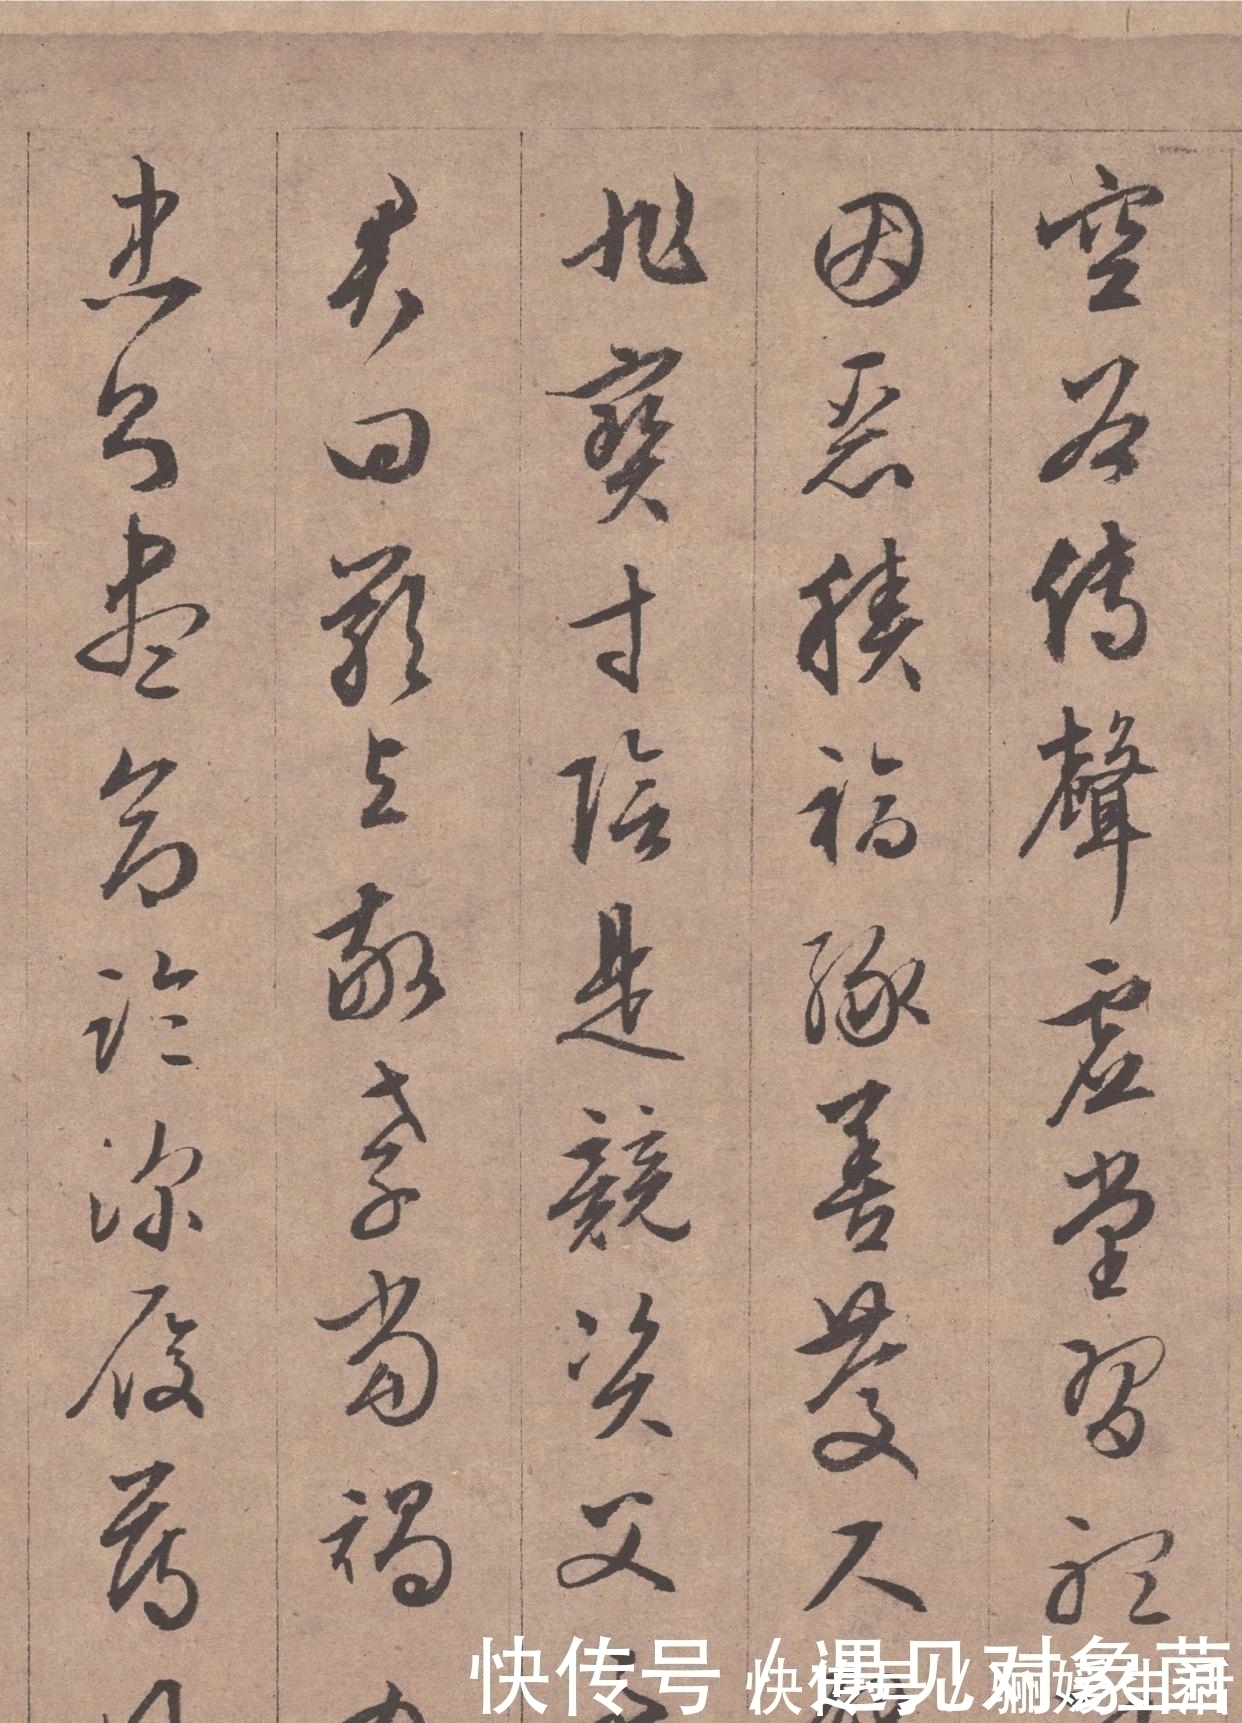 空谷傳聲虛堂習聽
因惡積福緣善慶尺
非寶寸陰是競資父
君曰嚴与敬孝當竭
忠則盡命臨深履薄
快传号 / 遇见对象菌
快传号